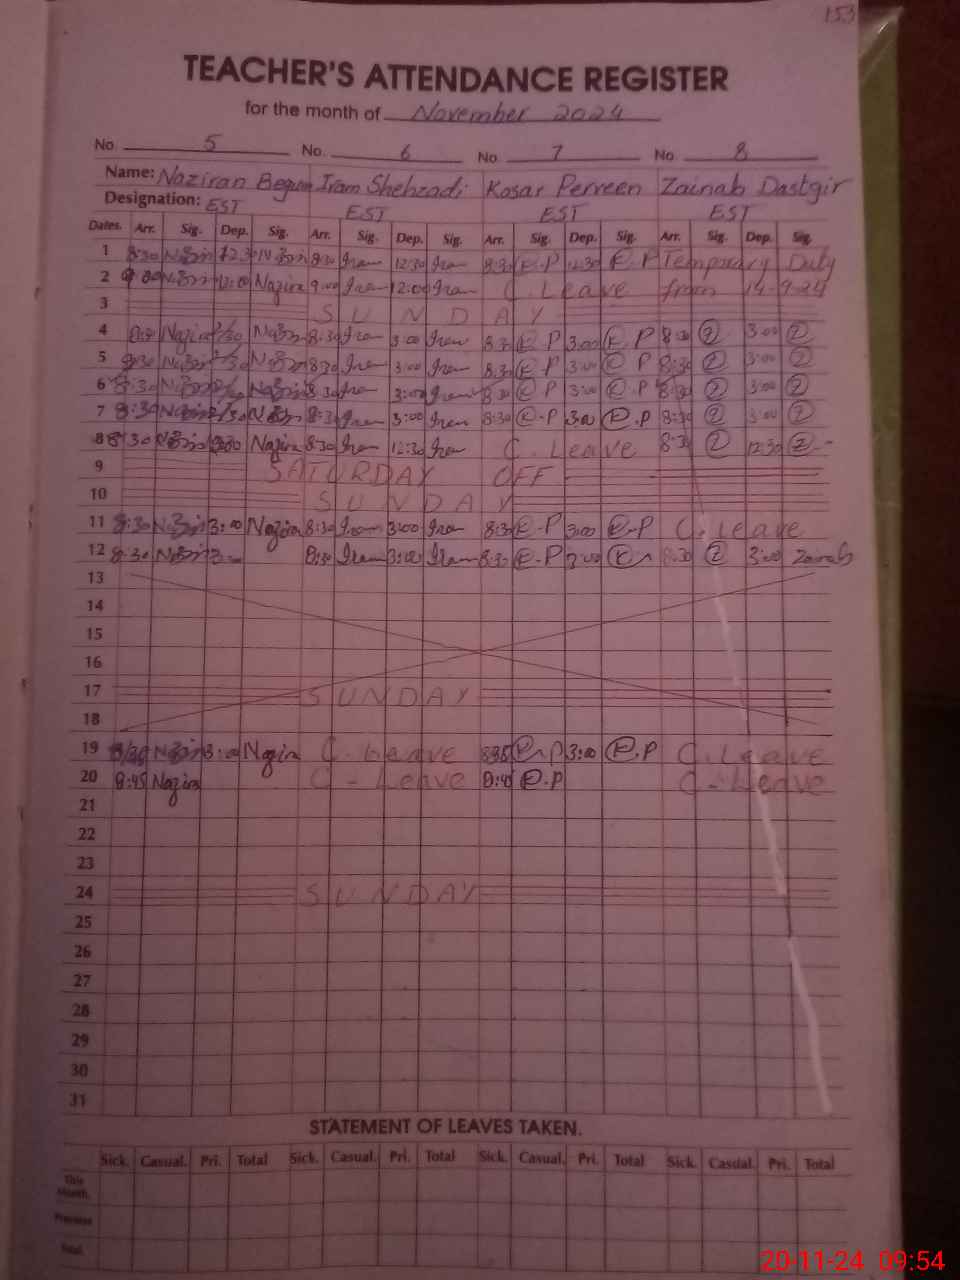 153
TEACHER'S ATTENDANCE REGISTER
for the month of November 2024
No. 5 No. 6 No. 7 No. 8
Name: Naziran Begum Iram Shehzadi Kosar Perveen Zainab Dastgir
Designation: EST EST EST EST
Dates. Arr. Sig. Dep. Sig. Arr. Sig. Dep. Sig. Arr. Sig. Dep. Sig. Arr. Sig. Dep. Sig.
1 8:30 12:30 8:30 Iram 12:30 Iram 8:30 K.P 12:30 K.P Temporary Duty
2 9:00 12:00 Nazira 9:00 Iram 12:00 Iram C. Leave from 14-9-24
3 SUNDAY
4 Nazira 8:30 Iram 3:00 Iram 8:30 K P 3:00 K P 8:30 Z 3:00 Z
5 8:30 8:30 Iram 3:00 Iram 8:30 K P 3:00 K P 8:30 Z 3:00 Z
6 8:30 8:30 Iram 3:00 Iram 8:30 K P 3:00 K P 8:30 Z 3:00 Z
7 8:30 8:30 Iram 3:00 Iram 8:30 K.P 3:00 K.P 8:30 Z 3:00 Z
8 8:30 Nazira 8:30 Iram 12:30 Iram C. Leave 8:30 Z 12:30 Z
9 SATURDAY OFF
10 SUNDAY
11 8:30 3:00 Nazira 8:30 Iram 3:00 Iram 8:30 K-P 3:00 K-P C. Leave
12 8:30 8:30 Iram 3:00 Iram 8:30 K-P 3:00 8:30 Z 3:00 Zainab
13
14
15
16
17 SUNDAY
18
19 3:00 Nazira C. Leave 8:35 3:00 K.P C. Leave
20 8:45 Nazira C - Leave 8:45 K.P C - Leave
21
22
23
24 SUNDAY
25
26
27
28
29
30
31
STATEMENT OF LEAVES TAKEN.
Sick. Casual. Pri. Total Sick. Casual. Pri. Total Sick. Casual. Pri. Total Sick. Casual. Pri. Total
This Month.
Previous
Total.
20-11-24 09:54